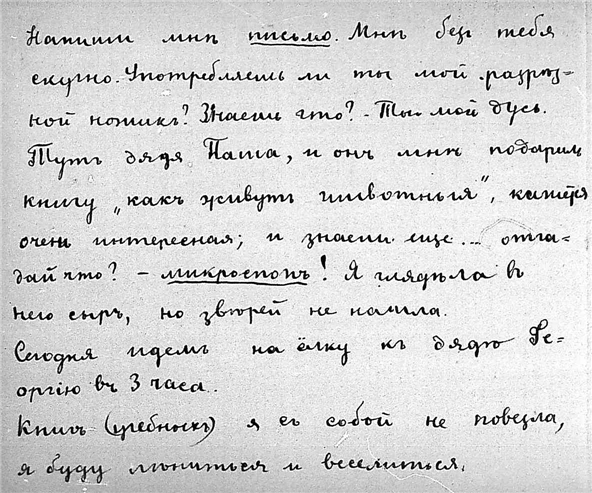 Напиши мнѣ письмо. Мнѣ безъ тебя
скучно. Употребляешь ли ты мой разрѣз=
ной ножикъ? Знаешь что? - Ты мой дусь.
Тутъ дядя Паша, и онъ мнѣ подарилъ
книгу „какъ живутъ животныя“, кажется
очень интересная; и знаешь еще... отга-
дай что? - микроскопъ! Я глядѣла въ
него сыръ, но звѣрей не нашла.
Сегодня идемъ на ёлку къ дядѣ Ге=
оргію въ 3 часа..
Книгъ (учебныхъ) я съ собой не повезла,
я буду лѣниться и веселиться.